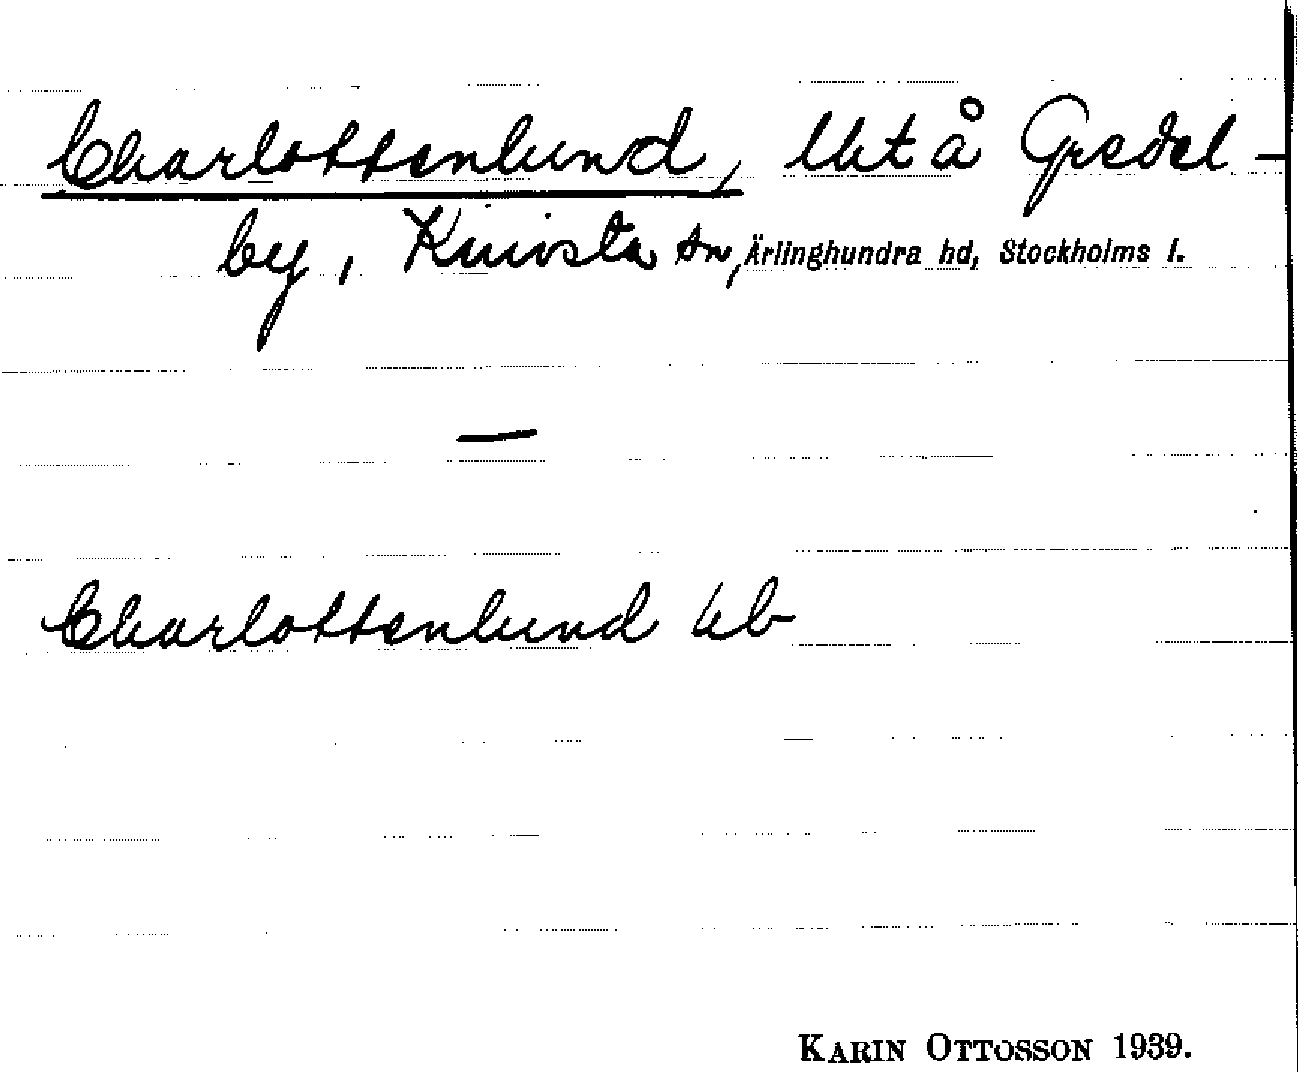 Charlottenlund, lht å Gredel-
by, Knivsta sn, Ärlinghundra hd, Stockholms l.
—
Charlottenlund kb
KARIN OTTOSSON 1939.